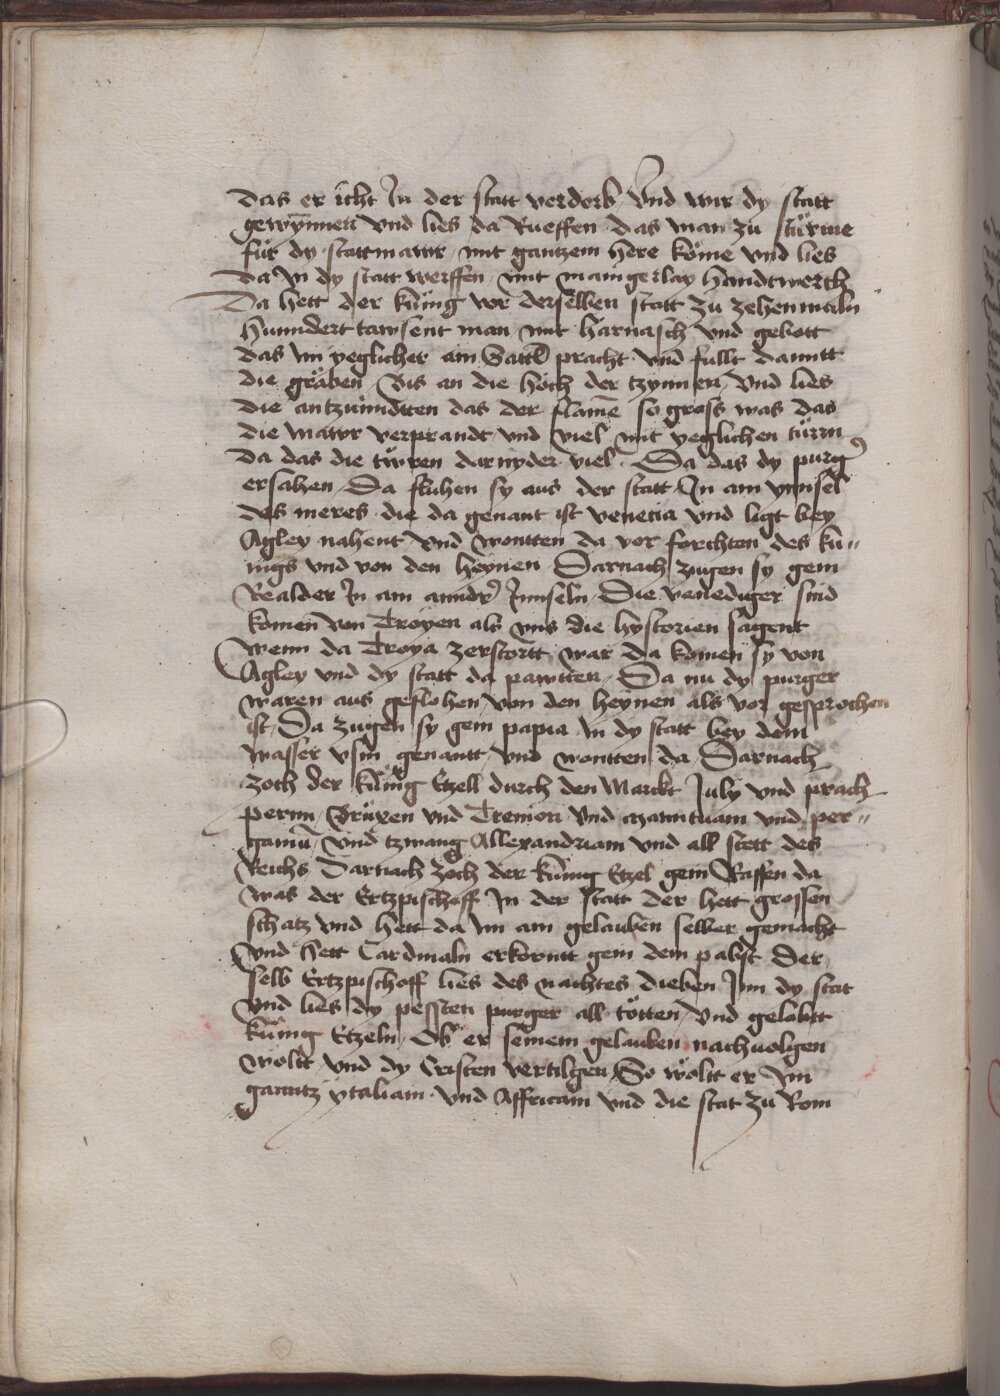 das er icht In der statt verderb Vnd wir dy statt
gewynnen vnd lies da Rueffen das man zu sturme
für dy stattmawr mit gantzem here köme vnd lies
da In dy statt werffen mit maingerlay handtwerch
Da hett der küng vor derselben statt zu zehenmaln
hunndert tawsent man mit harnasch vnd gebott
das im yeglicher ain Sattl pracht vnd füllt damitt
die gräben Bis an die höch der tzynnen vnd lies
die antzünndten das der flame so gross was das
die mawr verprandt vnd viel mit yeglichen türrn
Da das die türen darnyder viel Da das dy purg
ersahen Da fluhen sy aus der statt In am ynnsel
des meres die da genant ist venetia vnd ligt bey
Agley nahent vnd wontten da vor forchten des kü„
nigs vnd von den heynen Darnach zugen sy gein
Realder In am annder Innseln Die venediger sind
komen von Troyen als vns die hystorien sagent
Wenn da Troya zerstortt war Da komen sy von
Agley vnd dy statt da pawtten Da nu dy purger
waren aus geflohen von den heynen als vor gesprochen
ist Da zugen sy gein papia In dy statt bey dem
wasser vsin genantt vnd wontten da Darnach
zoch der küng Etzell durch den Marckt July vnd prach
pernn Brixen vnd Tremon Vnd manntuam vnd per„
gamu vnd tzwang Allexandriam vnd all stett des
Reichs Darnach zoch der küng Etzel gein Raffen da
was der Ertzpischoff In der statt der hett grossen
schatz vnd hett da im ain gelauben selber gemacht
vnd hett Cardinaln erkorntt gein dem pabst Der
selb Ertzpischoff lies des nachtes dieben Inn dy stat
vnd lies dy pessten purger all tötten Vnd gelobtt
küng Etzeln Ob er seinem gelauben nachuolgen
woltt vnd dy Cristen vertilgen So wöltt er im
ganntz ytaliam vnd Affricam vnd die stat zu Rom